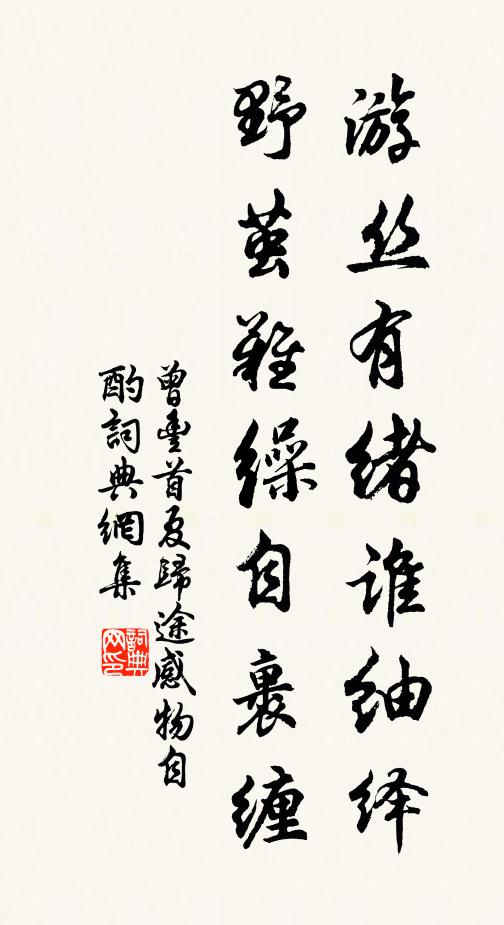 游丝有绪谁䌷绎
野茧难缲自裹缠
曾豊首夏歸途感物自
酌詞典網集
詞典网印